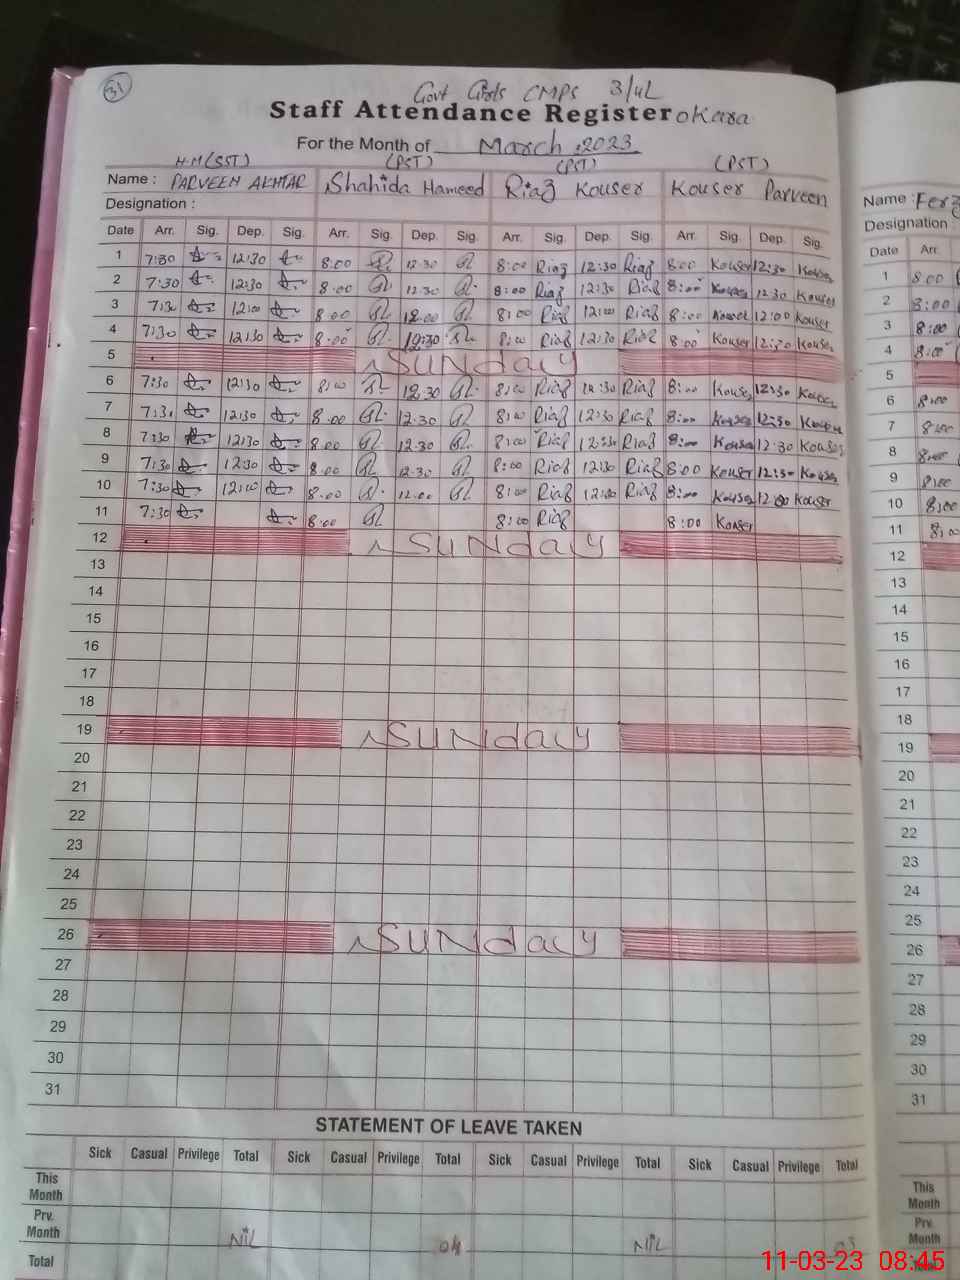 31
Govt Girls CMPS 3/4L
Staff Attendance Register Okara
For the Month of March, 2023
H.M(SST) (PST) (PST) (PST)
Name : PARVEEN AKHTAR Shahida Hameed Riaz Kouser Kouser Parveen Name :
Designation : Designation
Date Arr. Sig. Dep. Sig. Arr. Sig. Dep. Sig. Arr. Sig. Dep. Sig. Arr. Sig. Dep. Sig. Date Arr.
1 7:30 12:30 8:00 12:30 8:00 Riaz 12:30 Riaz 8:00 Kouser 12:30 Kouser 1 8:00
2 7:30 12:30 8:00 12:30 8:00 Riaz 12:30 Riaz 8:00 Kouser 12:30 Kouser 2 8:00
3 7:30 12:00 8:00 12:00 8:00 Riaz 12:00 Riaz 8:00 Kouser 12:00 Kouser 3 8:00
4 7:30 12:30 8:00 12:30 8:00 Riaz 12:30 Riaz 8:00 Kouser 12:30 Kouser 4 8:00
5 SUNday 5
6 7:30 12:30 8:00 12:30 8:00 Riaz 12:30 Riaz 8:00 Kouser 12:30 Kouser 6 8:00
7 7:30 12:30 8:00 12:30 8:00 Riaz 12:30 Riaz 8:00 Kouser 12:30 Kouser 7 8:00
8 7:30 12:30 8:00 12:30 8:00 Riaz 12:30 Riaz 8:00 Kouser 12:30 Kouser 8 8:00
9 7:30 12:30 8:00 12:30 8:00 Riaz 12:30 Riaz 8:00 Kouser 12:30 Kouser 9 8:00
10 7:30 12:00 8:00 12:00 8:00 Riaz 12:00 Riaz 8:00 Kouser 12:00 Kouser 10 8:00
11 7:30 8:00 8:00 Riaz 8:00 Kouser 11 8:00
12 SUNday 12
13 13
14 14
15 15
16 16
17 17
18 18
19 SUNday 19
20 20
21 21
22 22
23 23
24 24
25 25
26 SUNday 26
27 27
28 28
29 29
30 30
31 31
STATEMENT OF LEAVE TAKEN
Sick Casual Privilege Total Sick Casual Privilege Total Sick Casual Privilege Total Sick Casual Privilege Total
This Month This Month
Prv. Month NiL 04 NiL 03 Prv. Month
Total Total
11-03-23 08:45